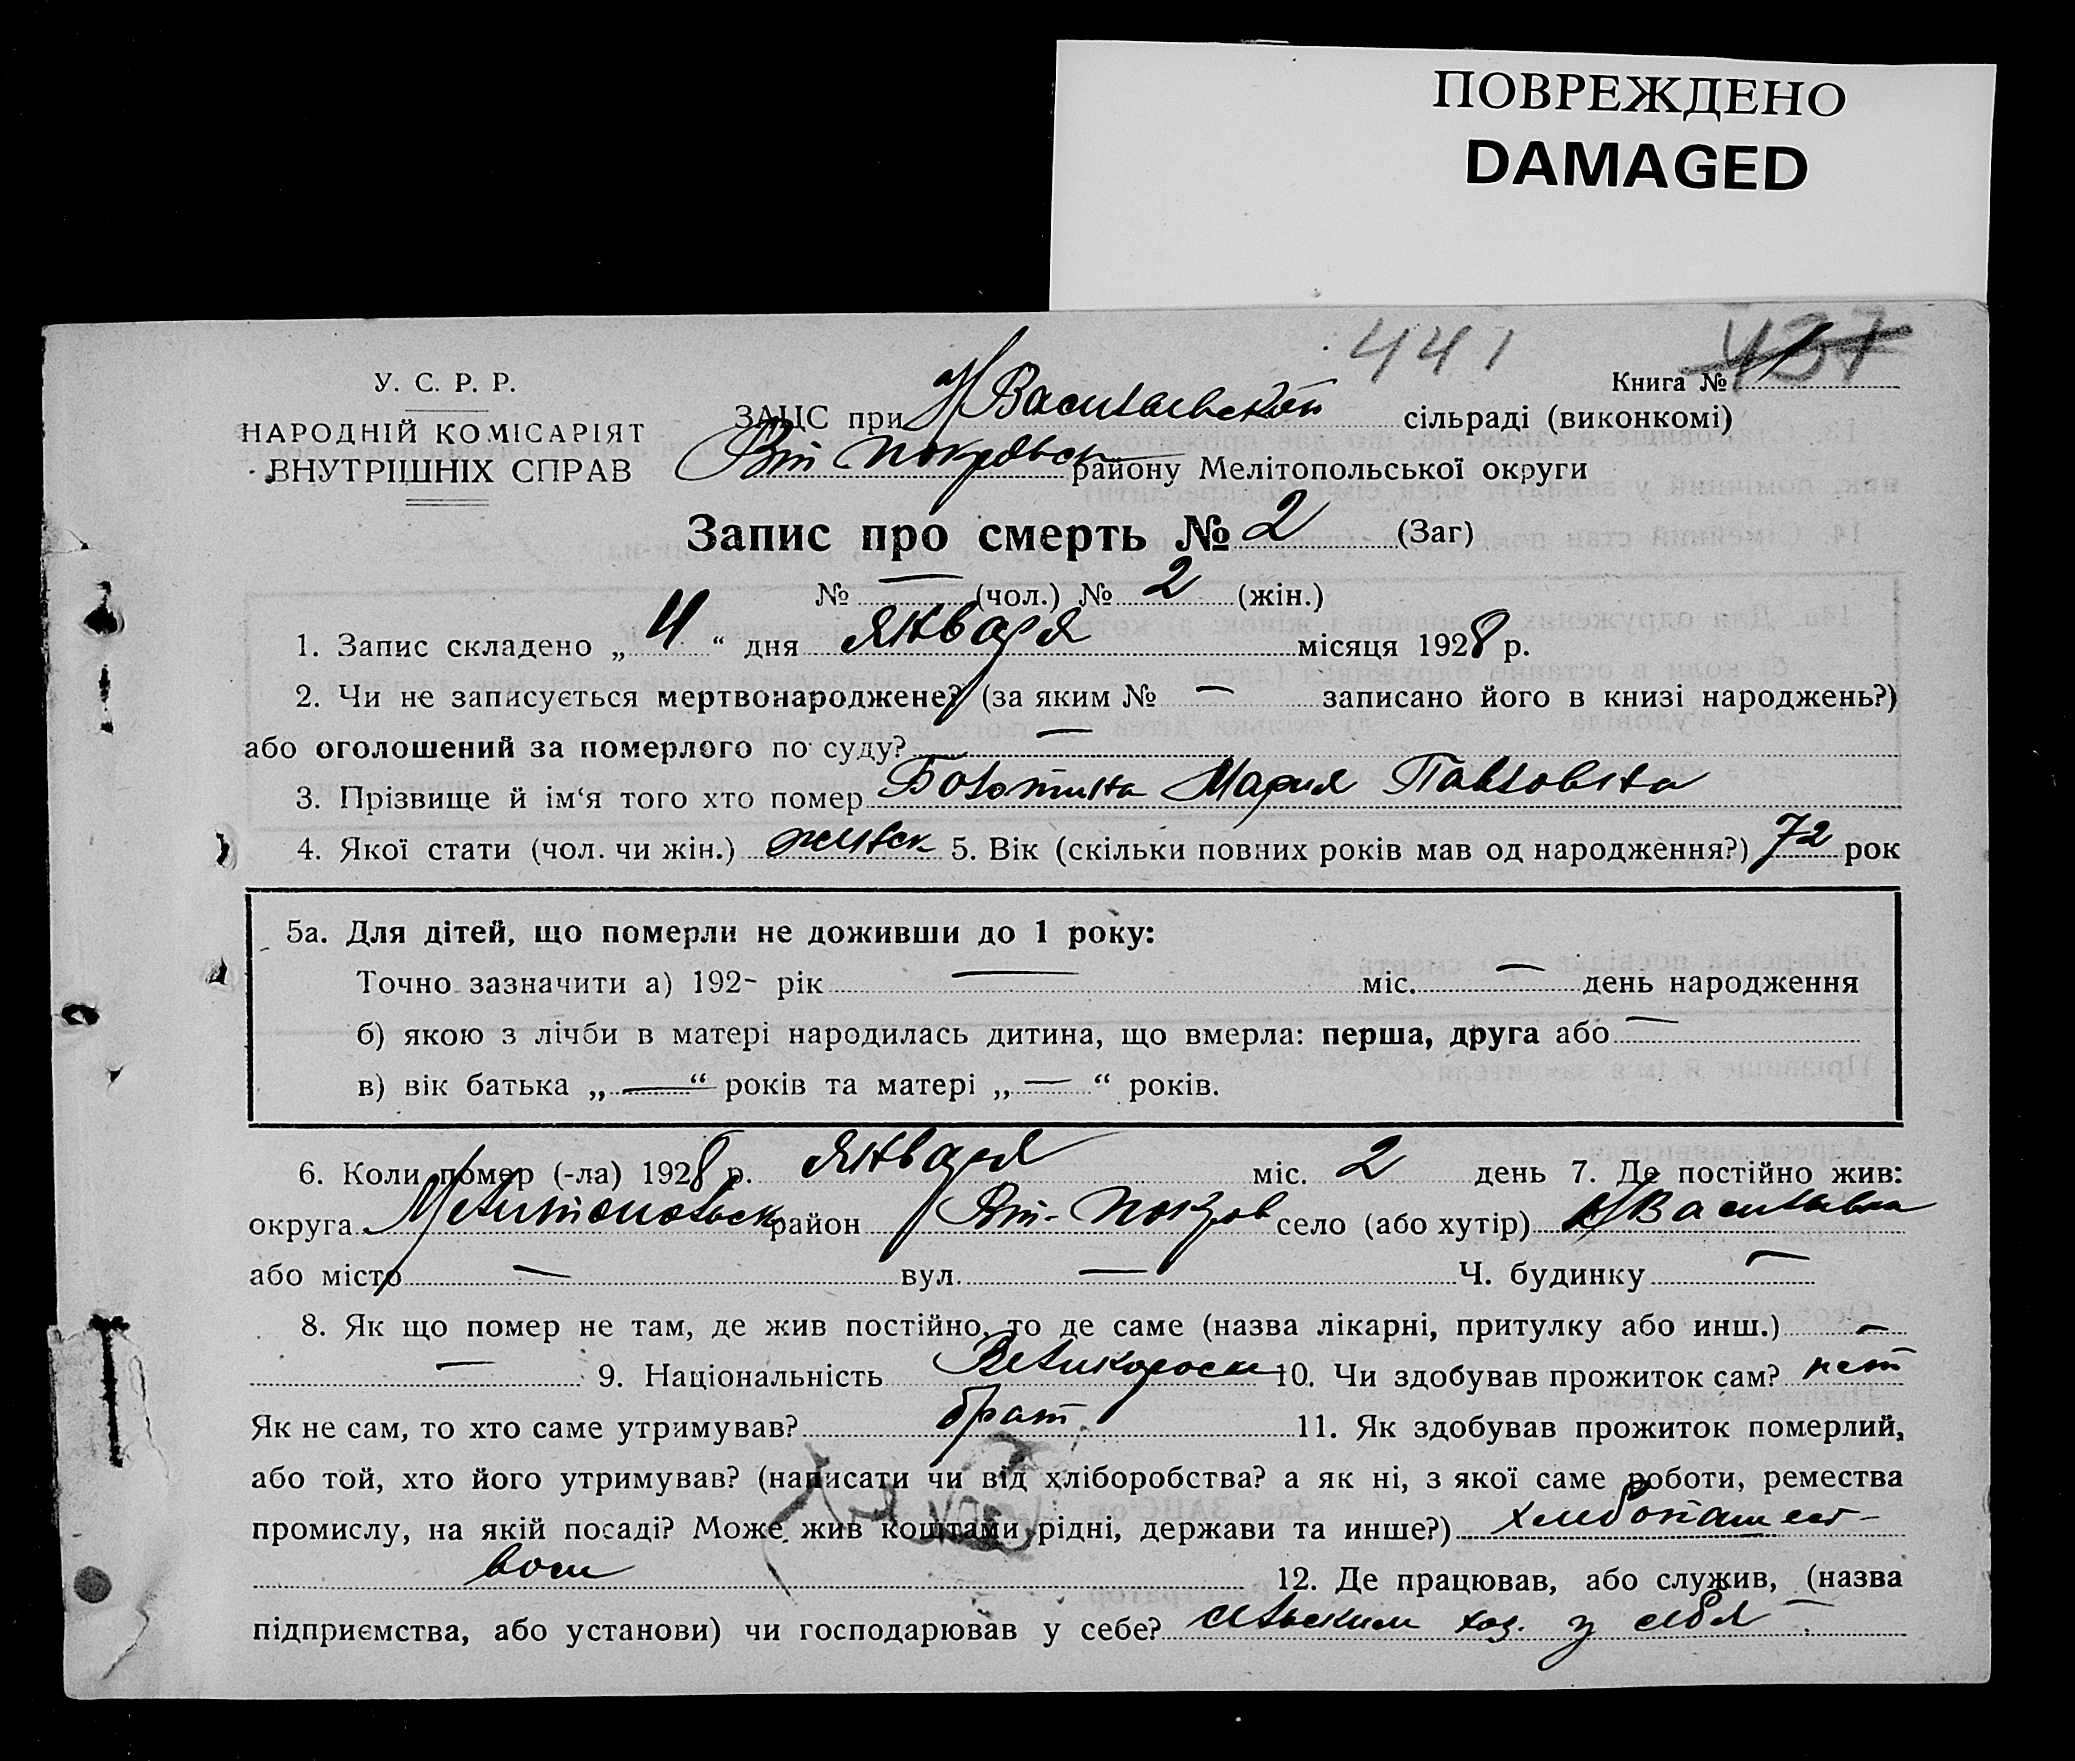 ПОВРЕЖДЕНО
DAMAGED
441
437
У. С. Р. Р.
НАРОДНІЙ КОМІСАРІЯТ
ВНУТРІШНІХ СПРАВ
Книга № 1
ЗАЦС при Н Васильевской сільраді (виконкомі)
Вт Покровск району Мелітопольської округи
Запис про смерть № 2 (Заг)
№ — (чол.) № 2 (жін.)
1. Запис складено „ 4 “ дня января місяця 1928 р.
2. Чи не записується мертвонароджене? (за яким № — записано його в книзі народжень?)
або оголошений за померлого по суду? —
3. Прізвище й ім‘я того хто помер Болотина Мария Павловна
4. Якої стати (чол. чи жін.) женск 5. Вік (скільки повних років мав од народження?) 72 рок
5а. Для дітей, що померли не доживши до 1 року:
Точно зазначити а) 192- рік — міс. — день народження
б) якою з лічби в матері народилась дитина, що вмерла: перша, друга або —
в) вік батька „ — “ років та матері „ — “ років.
6. Коли помер (-ла) 1928 р. января міс. 2 день 7. Де постійно жив:
округа Мелитопольск район Вт-Покров село (або хутір) Н Васильевка
або місто — вул. — Ч. будинку —
8. Як що помер не там, де жив постійно, то де саме (назва лікарні, притулку або инш.) —
— 9. Національність Великоросск 10. Чи здобував прожиток сам? нет
Як не сам, то хто саме утримував? брат 11. Як здобував прожиток померлий,
або той, хто його утримував? (написати чи від хліборобства? а як ні, з якої саме роботи, ремества
промислу, на якій посаді? Може жив коштами рідні, держави та инше?) хлебопашест-
вом 12. Де працював, або служив, (назва
підприємства, або установи) чи господарював у себе? сельским хоз. у себя —